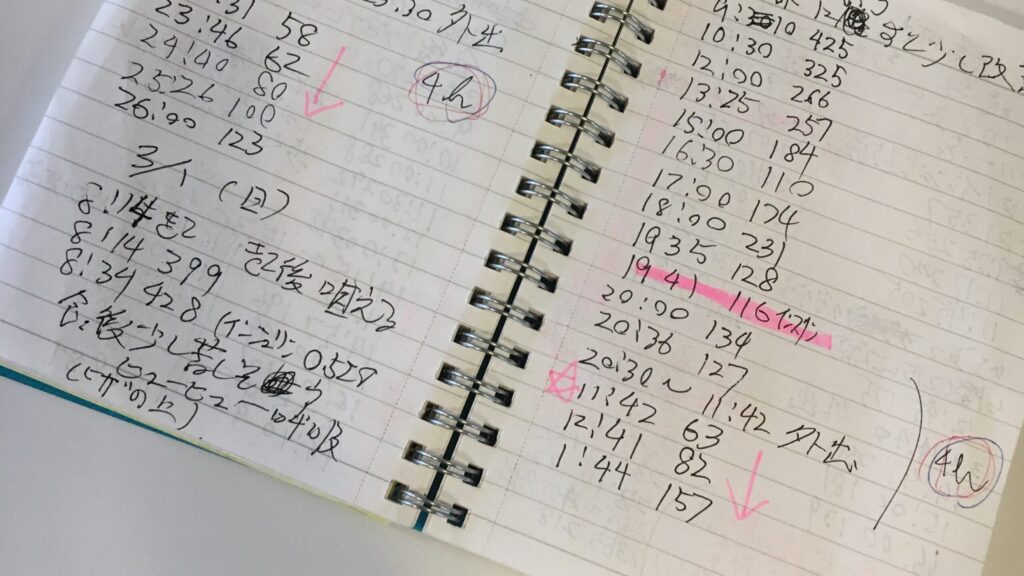 :31 58
23:46 62
24:40 80
25:26 100
26:00 123
23:30 外出
4h
3/1 (日)
8:14 起 起後 咀える
8:14 399
8:34 428 (インシュリン 0.5弱
食後少し苦しそう
ヒューヒュー呼吸
(ヒザの上)
9: 10 425
10:30 325
12:00 266
13:25 257
15:00 184
16:30 110
17:00 174
18:00 231
19 35 128
19 41 116 インスリン
20:00 134
20:36 127
20:30〜11:42 外出
11:42 63
12:41 82
1:44 157
4h